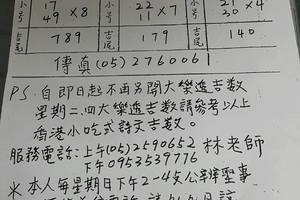 小号 17 49 ×8 小号 22 11 ×7 小号 21 30 ×4
吉尾 789 吉尾 179 吉尾 140
傳真(05)2760061
PS. 自即日起不再另開大樂透吉数
星期二.四大樂透吉数請參考以上
香港小吃式詩文吉数。
服務電話:上午(05)2590652 林老師
下午0953539776
※本人每星期日下午2-4